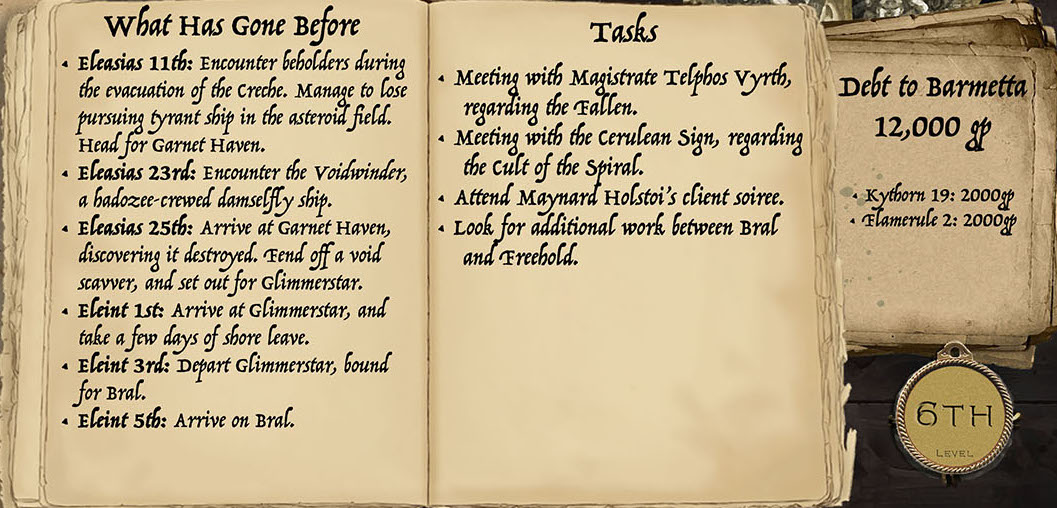 What Has Gone Before
• Eleasias 11th: Encounter beholders during
the evacuation of the Creche. Manage to lose
pursuing tyrant ship in the asteroid field.
Head for Garnet Haven.
• Eleasias 23rd: Encounter the Voidwinder,
a hadozee-crewed damselfly ship.
• Eleasias 25th: Arrive at Garnet Haven,
discovering it destroyed. Fend off a void
scavver, and set out for Glimmerstar.
• Eleint 1st: Arrive at Glimmerstar, and
take a few days of shore leave.
• Eleint 3rd: Depart Glimmerstar, bound
for Bral.
• Eleint 5th: Arrive on Bral.
Tasks
• Meeting with Magistrate Telphos Vyrth,
regarding the Fallen.
• Meeting with the Cerulean Sign, regarding
the Cult of the Spiral.
• Attend Maynard Holstoi's client soiree.
• Look for additional work between Bral
and Freehold.
Debt to Barmetta
12,000 gp
• Kythorn 19: 2000gp
• Flamerule 2: 2000gp
6TH
LEVEL